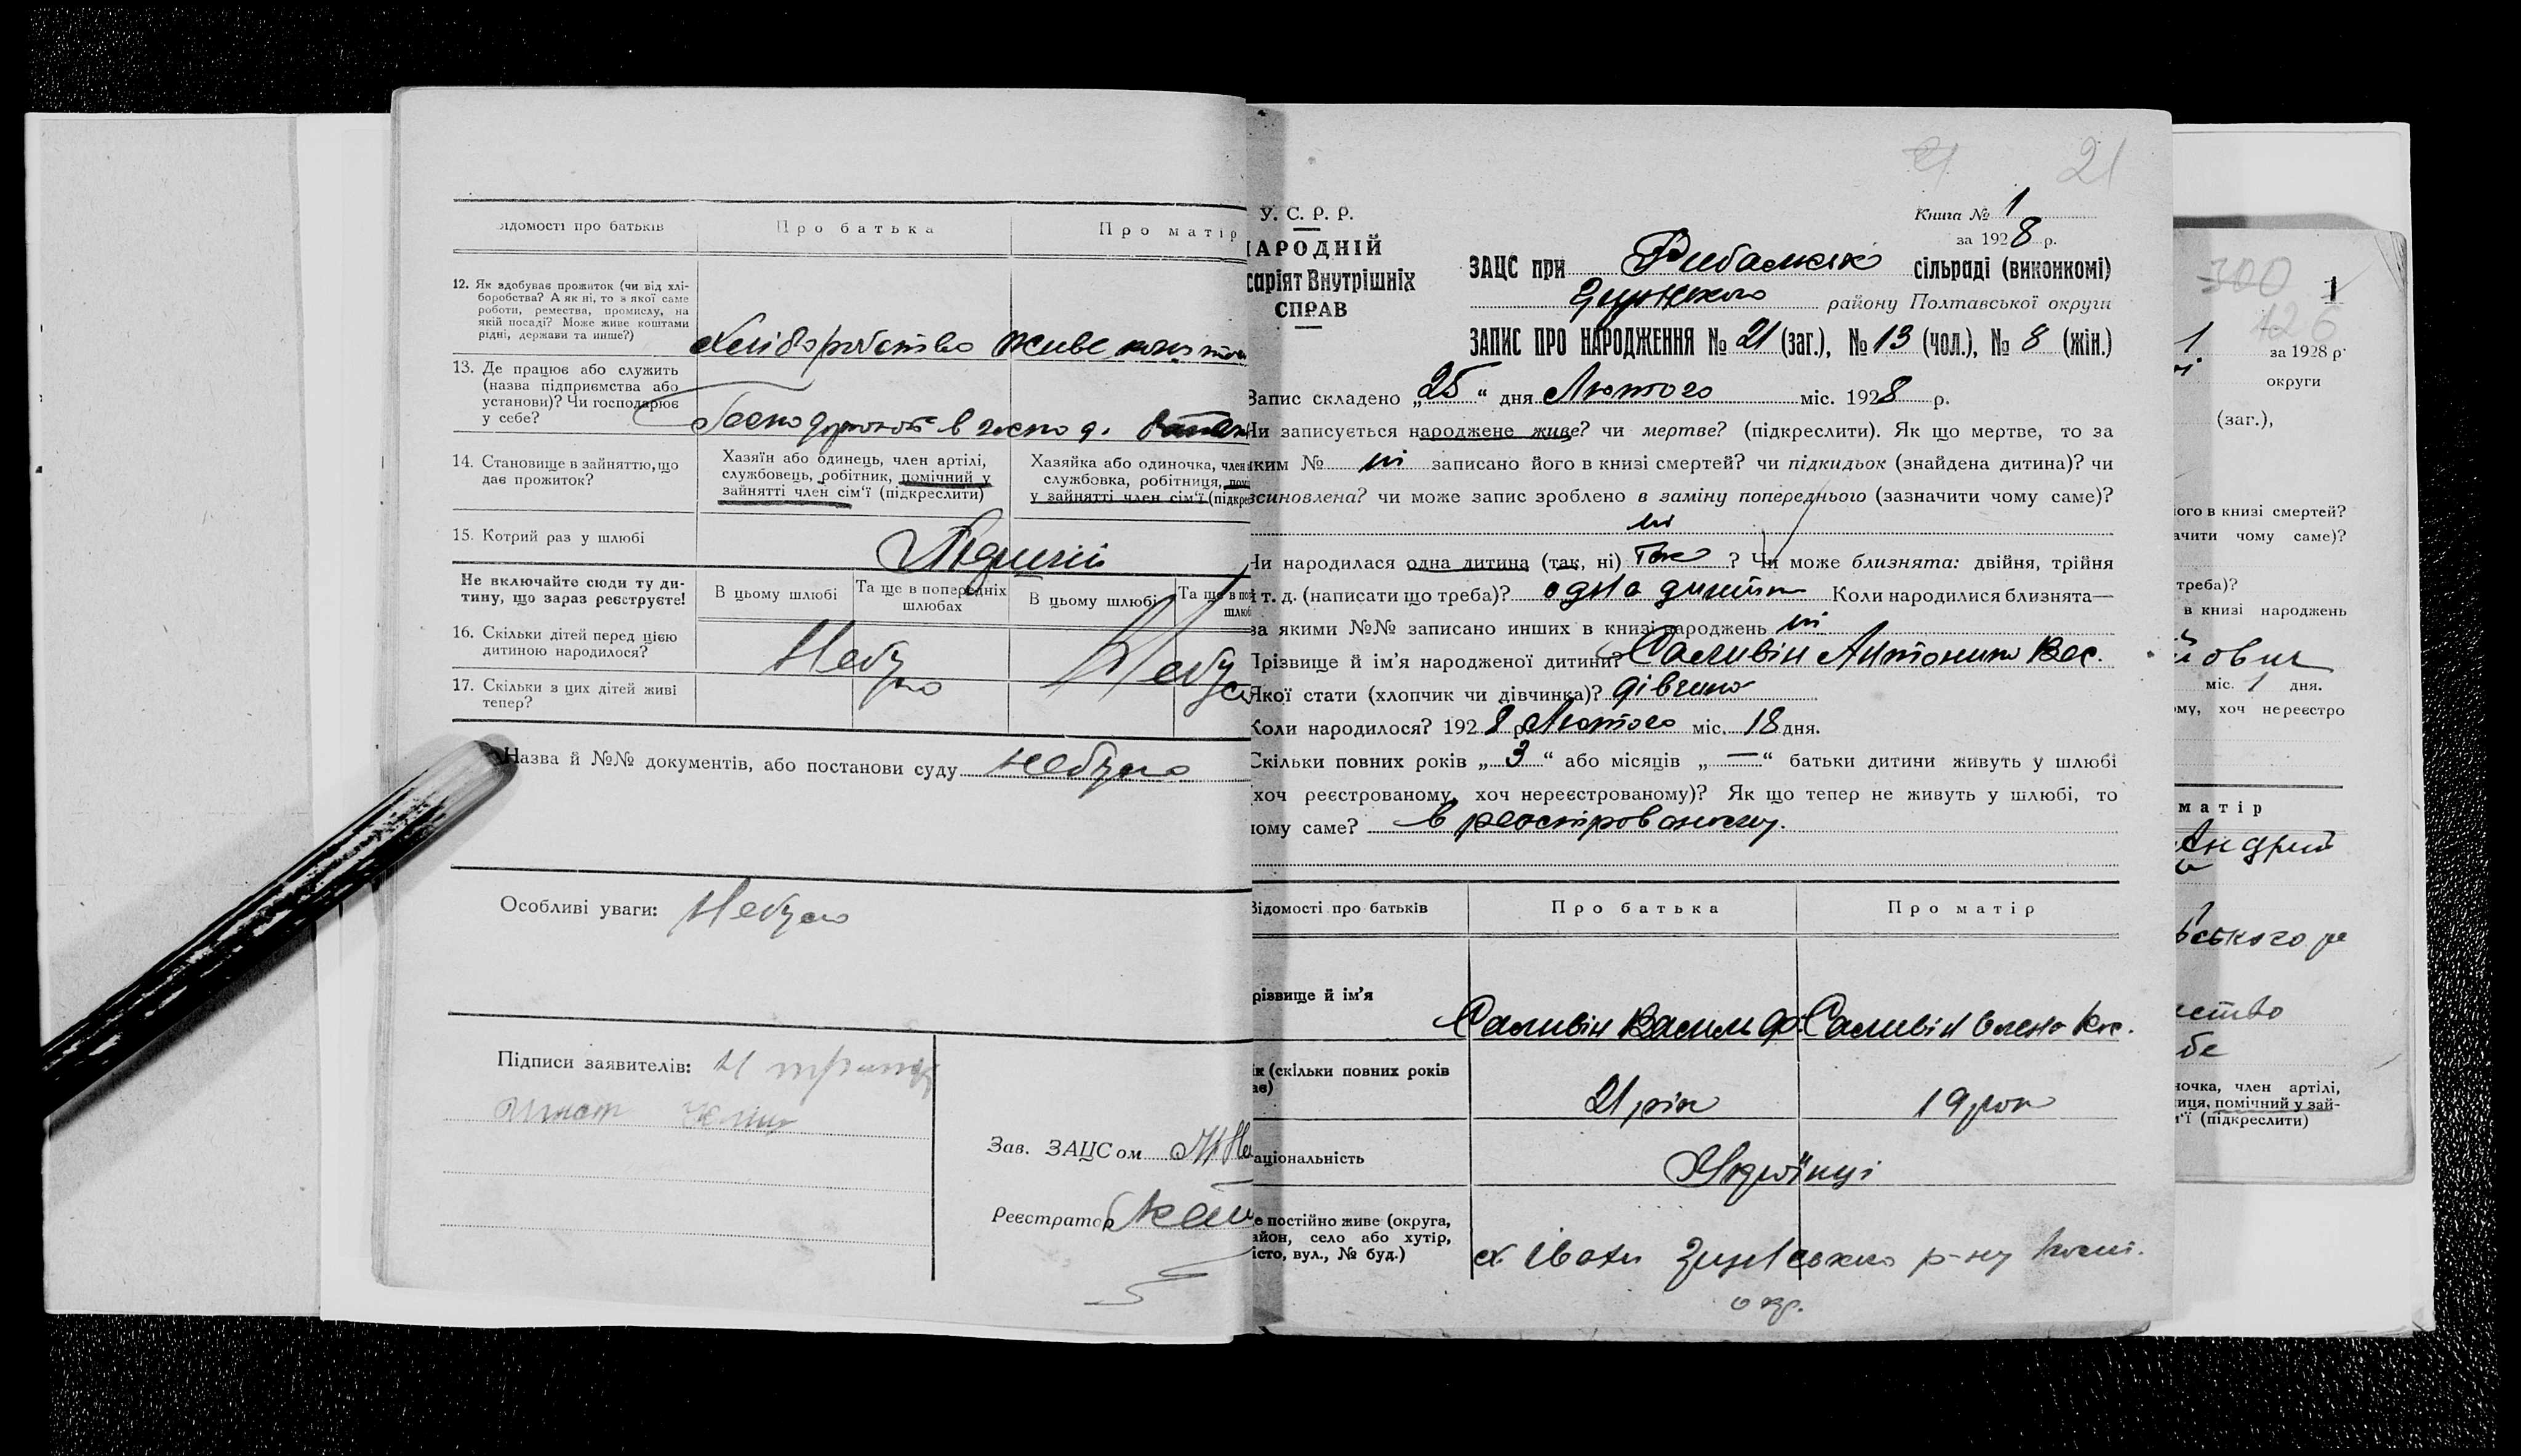 Відомості про батьків
Про батька
Про матір
12. Як здобуває прожиток (чи від хлі-
боробства? А як ні, то з якої саме
роботи, ремества, промислу, на
якій посаді? Може живе коштами
рідні, держави та инше?)
Хліборобство живе
13. Де працює або служить
(назва підприємства або
установи)? Чи господарює
у себе?
в госпо д.
14. Становище в зайняттю, що
дає прожиток?
Хазяїн або одинець, член артілі,
службовець, робітник, помічний у
зайнятті член сім'ї (підкреслити)
Хазяйка або одиночка, член
службовка, робітниця, пом
у зайнятті член сім'ї (підкре
15. Котрий раз у шлюбі
Не включайте сюди ту ди-
тину, що зараз реєструєте!
В цьому шлюбі
Та ще в попередніх
шлюбах
В цьому шлюбі
Та ще в поп
шлюб
16. Скільки дітей перед цією
дитиною народилося?
Небуло
Небуло
17. Скільки з цих дітей живі
тепер?
Назва й №№ документів, або постанови суду небуло
Особливі уваги: Небуло
Підписи заявителів:
Зав. ЗАЦСом
Реєстратор
21
21
У. С. Р. Р.
НАРОДНІЙ
саріят Внутрішніх
СПРАВ
Книга № 1
за 1928 р.
ЗАЦС при Рибальскі сільраді (виконкомі)
району Полтавської округи
ЗАПИС ПРО НАРОДЖЕННЯ № 21 (заг.), № 13 (чол.), № 8 (жін.)
Запис складено „25“ дня Лютого міс. 1928 р.
Чи записується народжене живе? чи мертве? (підкреслити). Як що мертве, то за
яким № ні записано його в книзі смертей? чи підкидьок (знайдена дитина)? чи
всиновлена? чи може запис зроблено в заміну попереднього (зазначити чому саме)?
ні
Чи народилася одна дитина (так, ні) так? Чи може близнята: двійня, трійня
і т. д. (написати що треба)? одна дитина Коли народилися близнята—
за якими №№ записано инших в книзі народжень ні
Прізвище й ім'я народженої дитини? Саливін Антонина Вас.
Якої стати (хлопчик чи дівчинка)? дівчина
Коли народилося? 1928 р. Лютого міс. 18 дня.
Скільки повних років „3“ або місяців „—“ батьки дитини живуть у шлюбі
хоч реєстрованому, хоч нереєстрованому)? Як що тепер не живуть у шлюбі, то
чому саме? в реєстрованому.
Відомості про батьків
Про батька
Про матір
різвище й ім'я
Саливін Василь Ф.
Саливін Олена Кос.
ік (скільки повних років
ає)
21 рік
19 рок
аціональність
е постійно живе (округа,
айон, село або хутір,
істо, вул., № буд.)
х. Івани Зіньківського р-ну
окр.
300
1
426
1
за 1928 р.
округи
(заг.),
ого в книзі смертей?
ачити чому саме)?
треба)?
в книзі народжень
ович
міс. 1 дня.
му, хоч нереєстро
матір
Андрий
ського ра
ство
бе
ночка, член артілі,
иця, помічний у зай-
'ї (підкреслити)